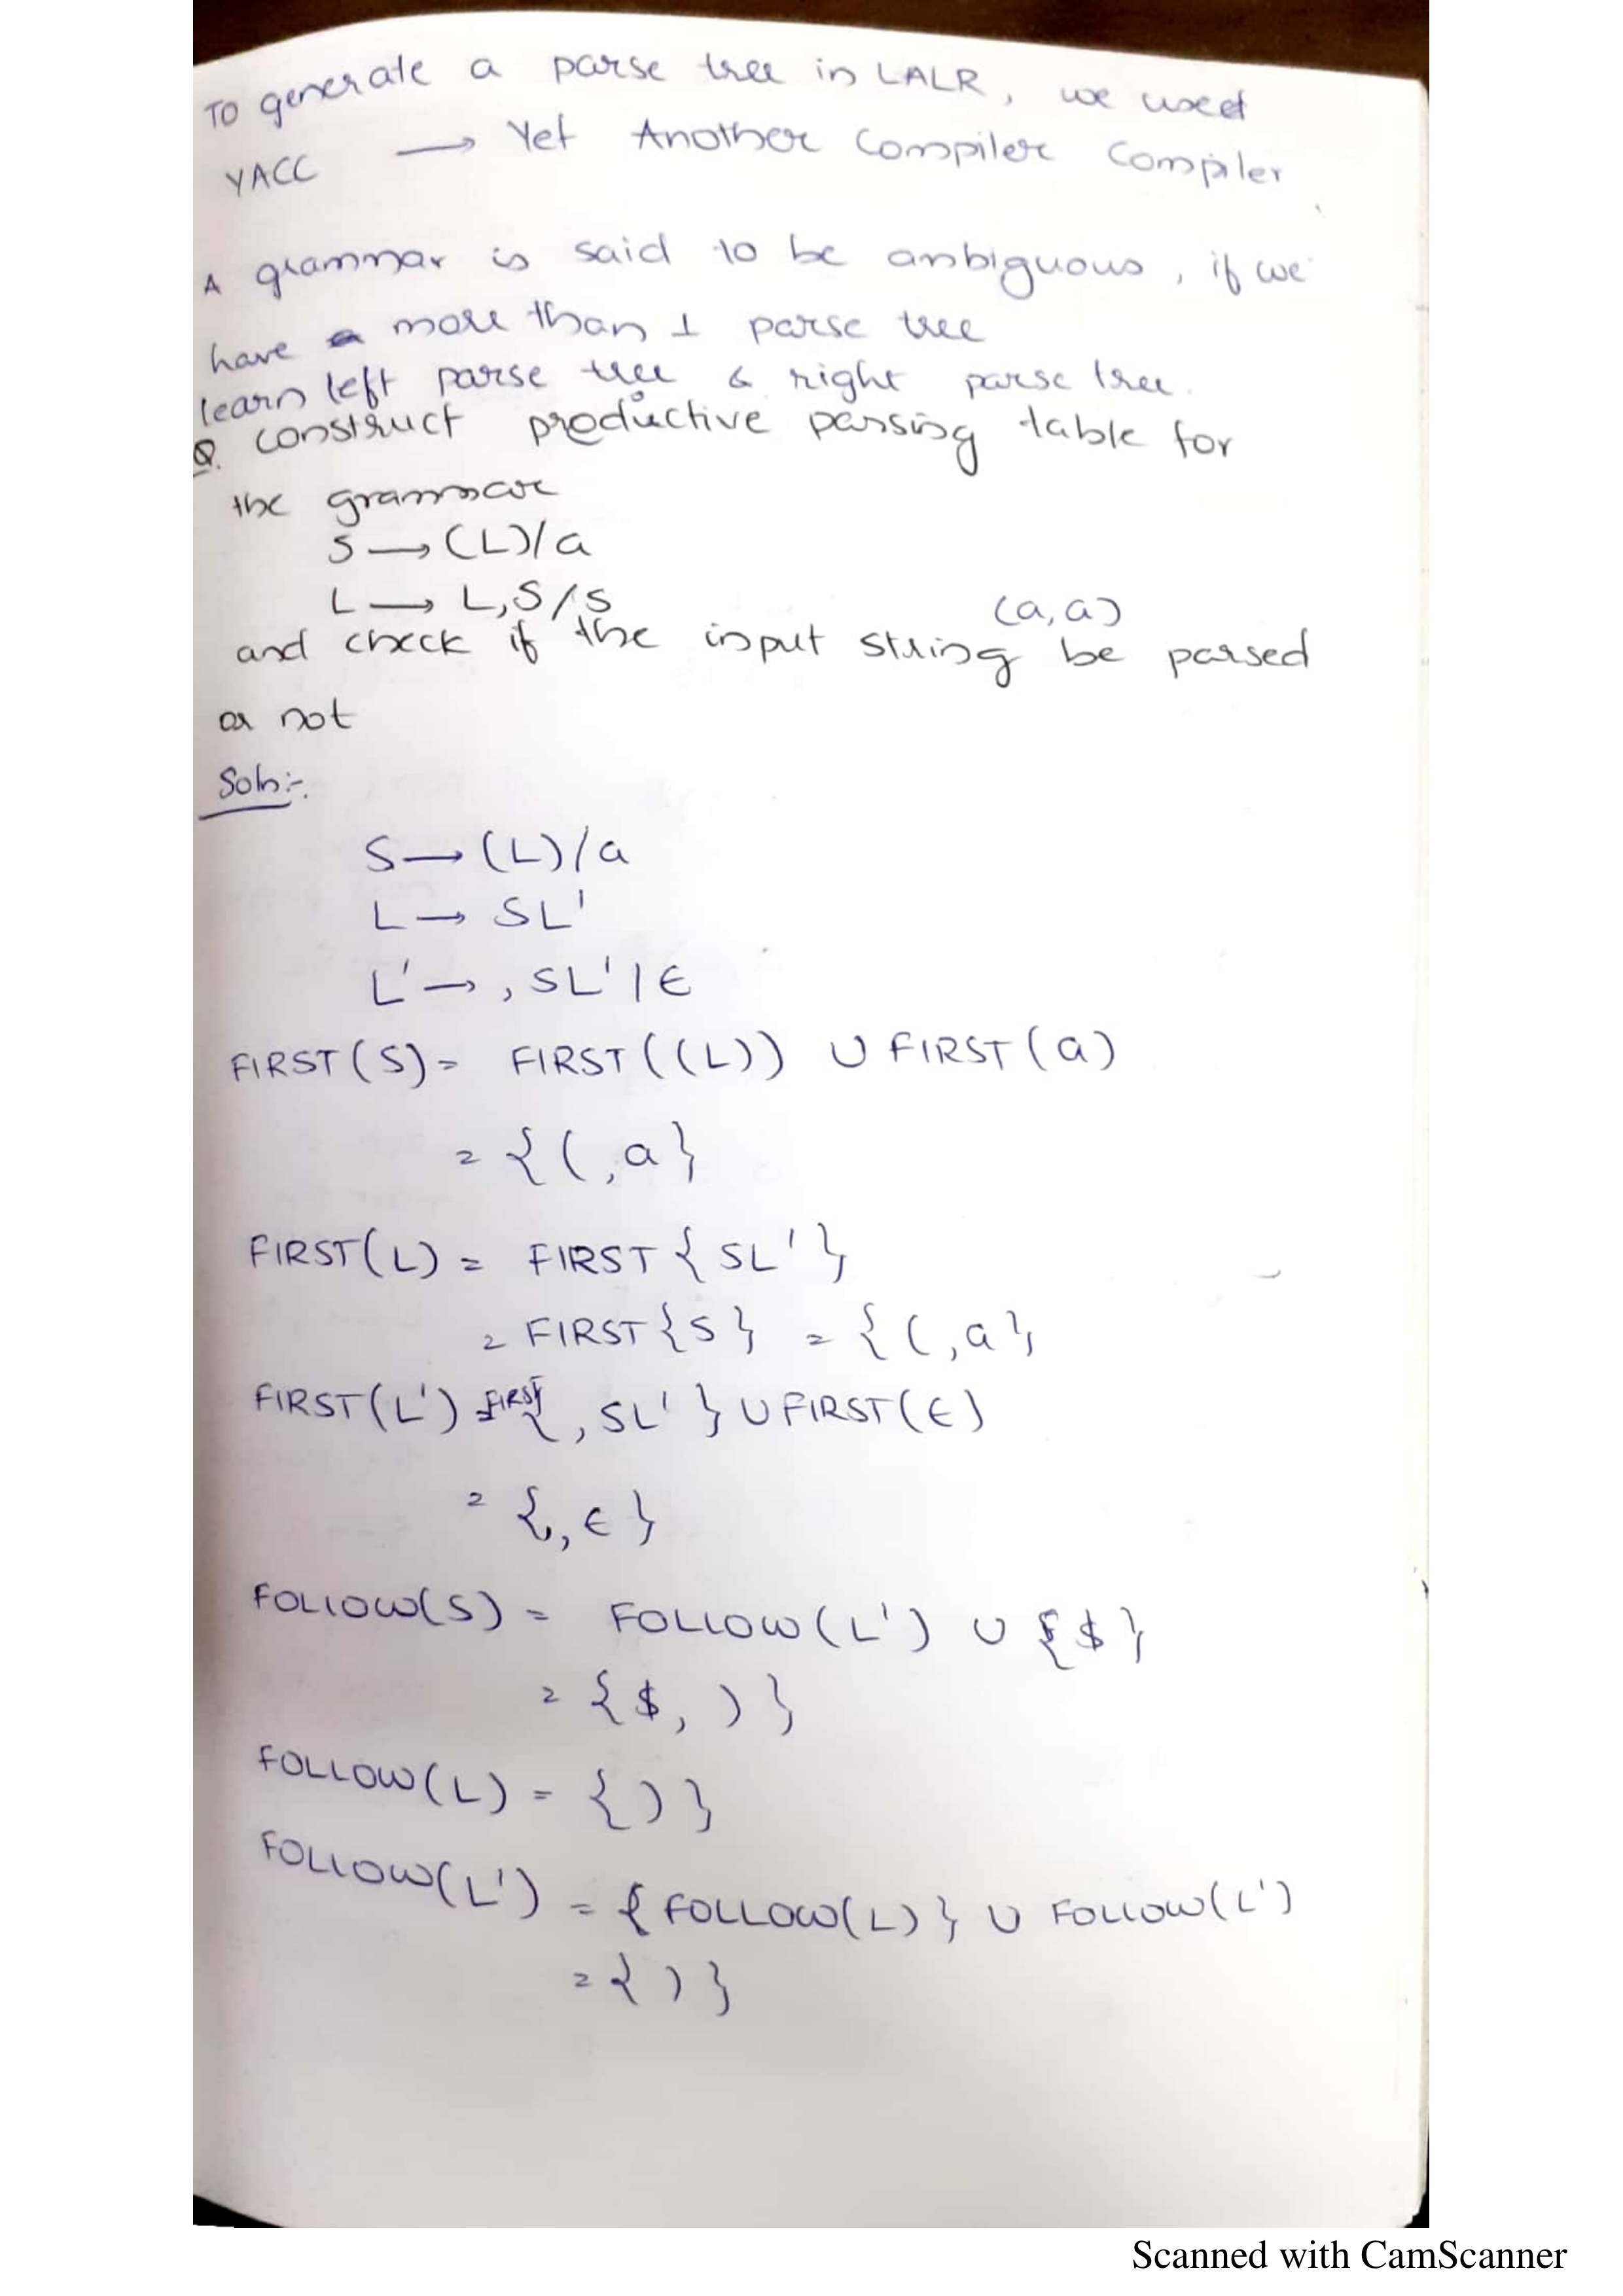 To generate a parse tree in LALR, we used
YACC → Yet Another Compiler Compiler
A grammar is said to be ambiguous, if we
have more than 1 parse tree
learn left parse tree & right parse tree.
Q. construct productive parsing table for
the grammar
S → (L)/a
L → L,S/S
(a,a)
and check if the input string be parsed
or not
Soln:-
S → (L)/a
L → SL'
L' → ,SL'|ϵ
FIRST(S) = FIRST((L)) ∪ FIRST(a)
= {(,a}
FIRST(L) = FIRST{SL'}
= FIRST{S} = {(,a}
FIRST(L') = FIRST{,SL'} ∪ FIRST(ϵ)
= {,,ϵ}
FOLLOW(S) = FOLLOW(L') ∪ {$}
= {$, )}
FOLLOW(L) = {)}
FOLLOW(L') = {FOLLOW(L)} ∪ FOLLOW(L')
= {)}
Scanned with CamScanner